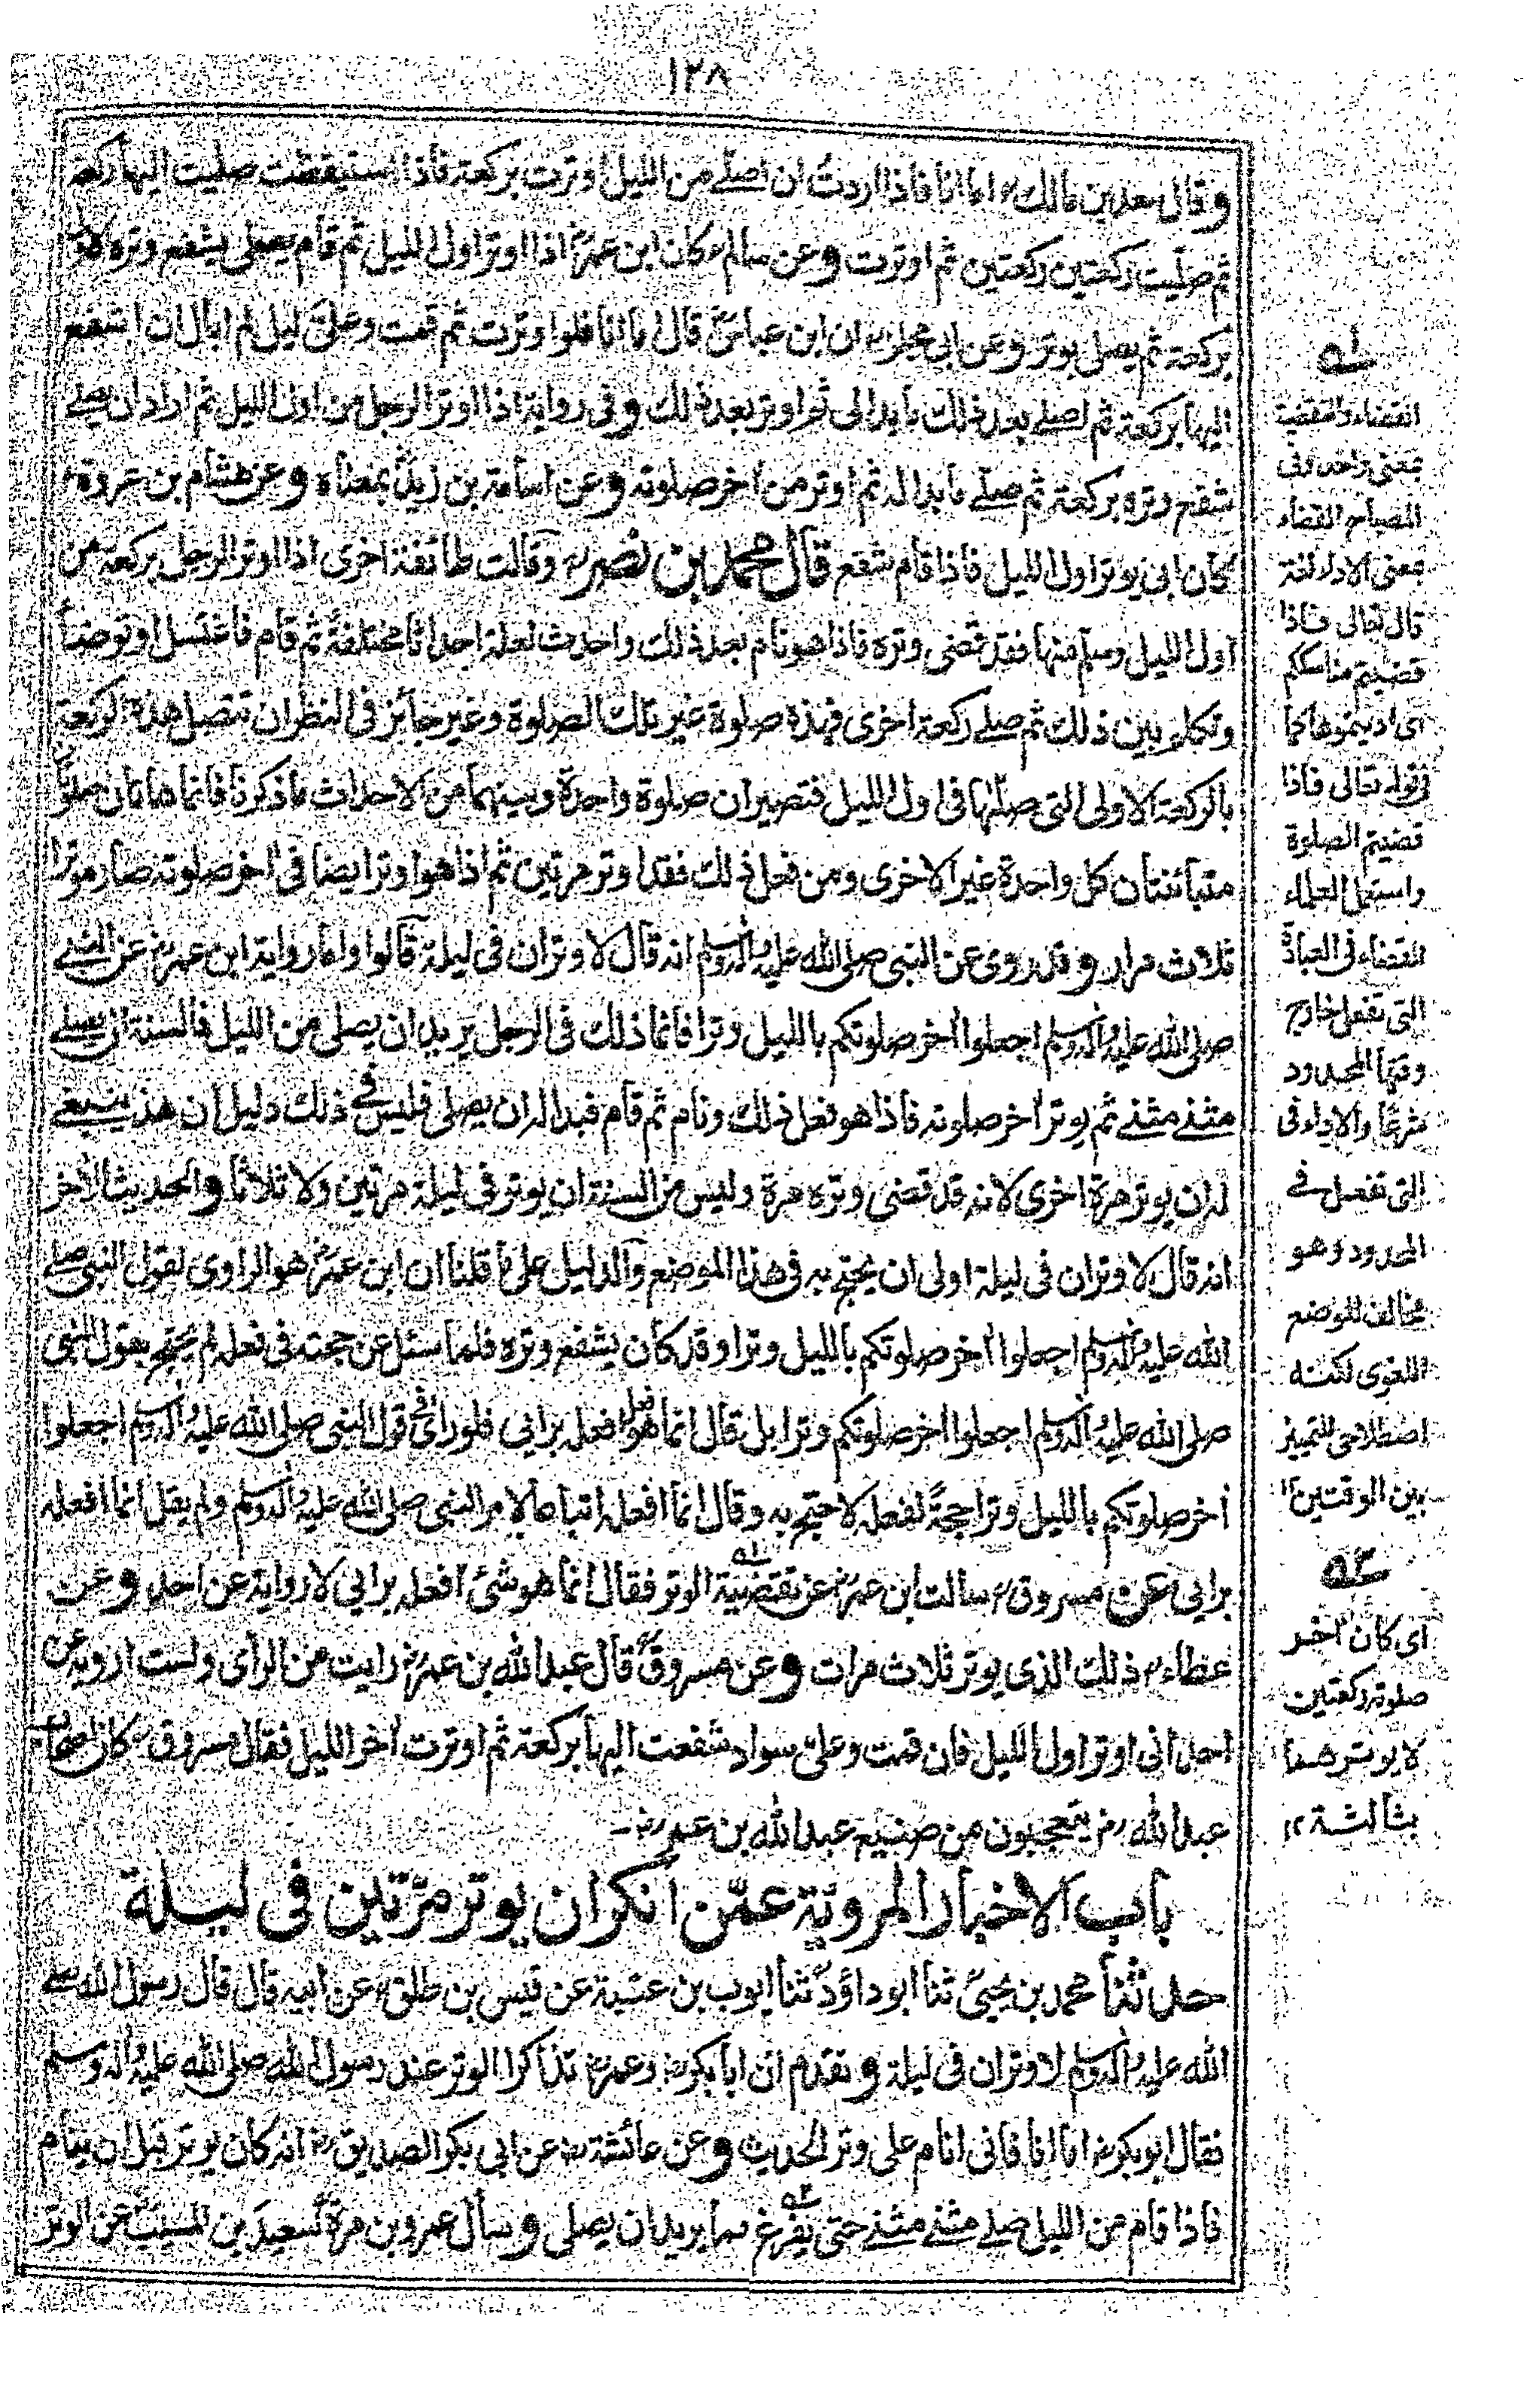 ١٢٨
وقال سعد بن مالك اما انا فاذا اردت ان اصلے من الليل اوترت بركعة فاذا استيقظت صليت اليها ركعة
ثم صليت ركعتين ركعتين ثم اوترت وعن سالم كان ابن عمر اذا اوتر اول الليل ثم قام يصلى يشفع وتره الاول
بركعة ثم يصلى ثم يوتر وعن ابى مجلز ان ابن عباس قال اما انا فلو اوترت ثم قمت وعلى ليل لم ابال ان اشفع
اليها بركعة ثم اصلے بعد ذلك ما بدا لى ثم اوتر بعد ذلك وفى رواية اذا اوتر الرجل من اول الليل ثم اراد ان يصلے
شفع وتره بركعة ثم صلے ما بدا له ثم اوتر من اٰخر صلوته وعن اسامة بن زيد بمعناه وعن هشام بن عروة
كان ابى يوتر اول الليل فاذا قام شفع قال محمد بن نصر وقالت طائفة اخرى اذا اوتر الرجل بركعة من
اول الليل وسلم منها فقد قضى وتره فاذا هو نام بعد ذلك واحدث لعله احداثا مختلفة ثم قام فاغتسل او توضأ
وتكلم بين ذلك ثم صلے ركعة اخرى فهذه صلوة غير تلك الصلوة وغير جائز فى النظر ان تتصل هذه الركعة
بالركعة الاولى التى صلاها فى اول الليل فتصيران صلوة واحدة وبينهما من الاحداث ما ذكرنا فانما هاتان صلوتان
متبائنتان كل واحدة غير الاخرى ومن فعل ذلك فقد اوتر مرتين ثم اذا هو اوتر ايضا فى اٰخر صلوته صار موترا
ثلاث مرار وقد روى عن النبى صلى الله عليه واله وسلم انه قال لا وتران فى ليلة قالوا واما رواية ابن عمر عن النبے
صلى الله عليه واله وسلم اجعلوا اٰخر صلوتكم بالليل وترا فانما ذلك فى الرجل يريد ان يصلى من الليل فالسنة ان يصلے
مثنے مثنے ثم يوتر اٰخر صلوته فاذا هو فعل ذلك ونام ثم قام فبدا له ان يصلى فليس فے ذلك دليل ان هذا ينبغے
له ان يوتر مرة اخرى لانه قد قضى وتره مرة وليس من السنة ان يوتر فى ليلة مرتين ولا ثلاثا والحديث الاٰخر
انه قال لا وتران فى ليلة اولى ان يحتج به فى هذا الموضع والدليل على ما قلنا ان ابن عمر هو الراوى لقول النبى صلے
الله عليه واله وسلم اجعلوا اٰخر صلوتكم بالليل وترا وقد كان يشفع وتره فلما سئل عن حجته فى فعله لم يحتج بقول النبى
صلى الله عليه واله وسلم اجعلوا اٰخر صلوتكم وترا بل قال انما هو فعل افعله برايى فلو راى فى قول النبى صلى الله عليه واله وسلم اجعلوا
اٰخر صلوتكم بالليل وترا حجةً لفعله لاحتج به وقال انما افعله اتباعا لامر النبى صلى الله عليه واله وسلم ولم يقل انما افعله
برايى عن مسروق سالت ابن عمر عن تقضية الوتر فقال انما هو شئ افعله برايى لا رواية عن احد وعن
عطاء ذلك الذى يوتر ثلاث مرات وعن مسروق قال عبد الله بن عمر رايت من الرأى ولست ارويه عن
احد انى اوتر اول الليل فان قمت وعلىّ سواد شفعت اليها بركعة ثم اوترت اٰخر الليل فقال مسروق كان اصحاب
عبد الله يتعجبون من صنيع عبد الله بن عمر
باب الاخبار المروية عمّن انكر ان يوتر مرّتين فى ليلة
حدثنا محمد بن يحيى ثنا ابو داؤد ثنا ايوب بن عتبة عن قيس بن طلق عن ابيه قال قال رسول الله صلے
الله عليه واله وسلم لا وتران فى ليلة وتقدم ان ابا بكر وعمر تذاكرا الوتر عند رسول الله صلى الله عليه واله وسلم
فقال ابو بكر اما انا فانى انام على وتر الحديث وعن عائشة عن ابى بكر الصديق انه كان يوتر قبل ان ينام
فاذا قام من الليل صلے مثنے مثنے حتى يفرغ مما يريد ان يصلى وسأل عمرو بن مرة سعيد بن المسيب عن الوتر
لـه
القضاء والتقضية
بمعنى واحد وفى
المصباح القضاء
بمعنى الاداء لغة
قال تعالى فاذا
قضيتم مناسككم
اى اديتموها كما
قوله تعالى فاذا
قضيتم الصلوة
واستعمل العلماء
القضاء فى العبادة
التى تفعل خارج
وقتها المحدود
شرعًا والاداء فى
التى تفعل فے
المحدود وهو
مخالف للوضع
اللغوى لكنه
اصطلاحى للتمييز
بين الوقتين ١٢
٢ـه
اى كان اٰخر
صلوته ركعتين
لا يوترهما
بثالثة ١٢